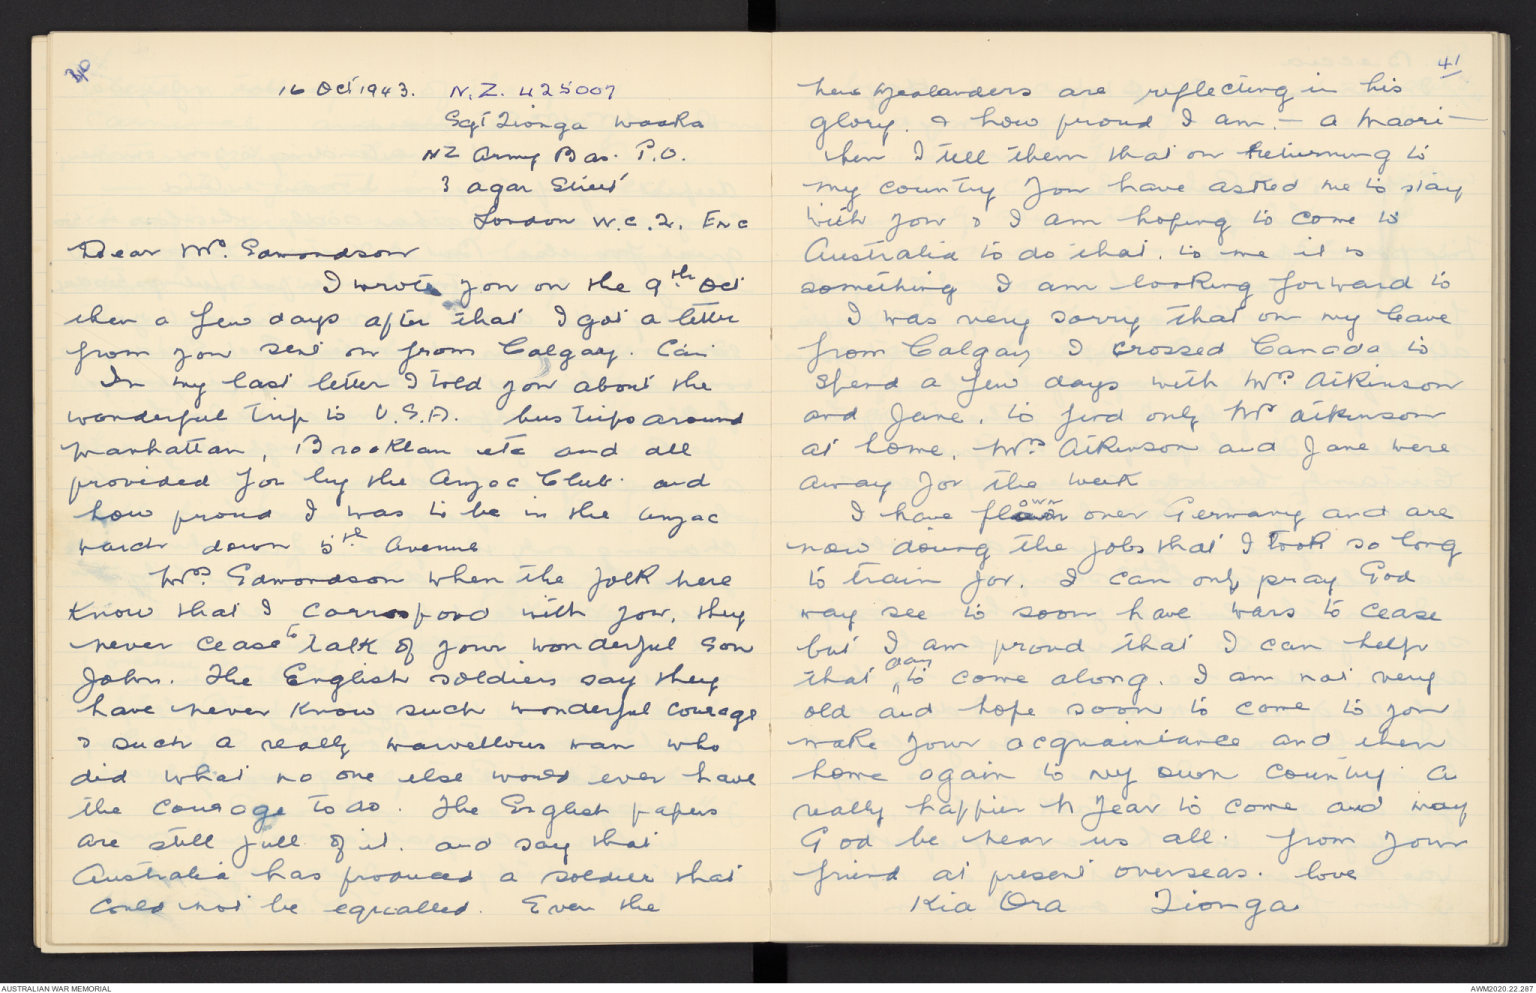 40
16 Oct 1943. N.Z. 425007
Sgt Tionga Waaka
NZ Army Bas. P.O.
3 agar Street
London W.C.2. Eng
Dear Mrs Edmondson
I wrote you on the 9th Oct
then a few days after that I got a letter
from you sent on from Calgary. Can
In my last letter I told you about the
wonderful trip to U.S.A. bus trips around
Manhattan, Brooklan etc and all
provided for by the Anzac Club. and
how proud I was to be in the Anzac
march down 5th Avenue
Mrs Edmondson when the folk here
know that I correspond with you, they
never cease to talk of your wonderful son
John. The English soldiers say they
have never know such wonderful courage
& such a really marvellous man who
did what no one else would ever have
the courage to do. The English papers
are still full of it. and say that
Australia has produced a soldier that
could not be equalled. Even the
41
New Zealanders are reflecting in his
glory. & how proud I am. — a Maori —
when I tell them that on returning to
my country you have asked me to stay
with you & I am hoping to come to
Australia to do that. to me it is
something I am looking forward to
I was very sorry that on my leave
from Calgary I crossed Canada to
spend a few days with Mrs Atkinson
and Jane. to find only Mr Atkinson
at home. Mrs Atkinson and Jane were
away for the week
I have flown over Germany and are
now doing the jobs that I took so long
to train for. I can only pray God
may see to soon have wars to cease
but I am proud that I can help
that day to come along. I am not very
old and hope soon to come to you
make your acquaintance and then
home again to my own country. a
really happier N Year to come and may
God be near us all. from your
friend at present overseas. love
Kia Ora Tionga
AUSTRALIAN WAR MEMORIAL
AWM2020.22.287